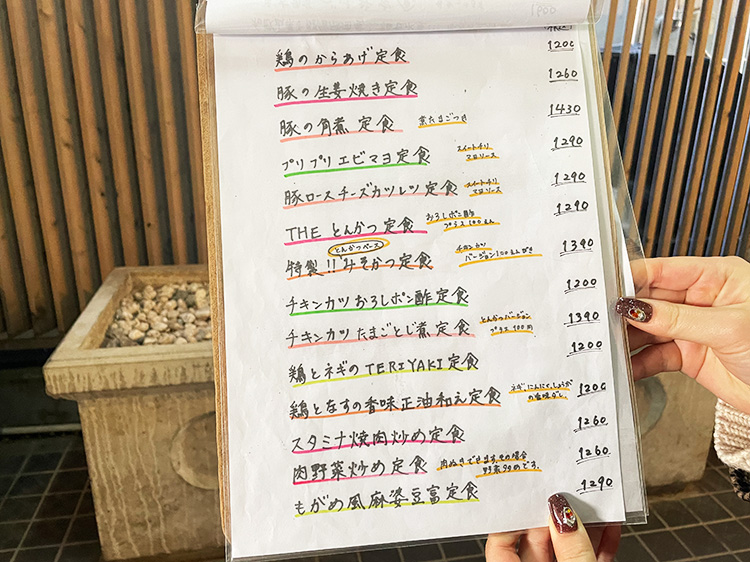 鶏のからあげ定食 1200
豚の生姜焼き定食 1260
豚の角煮定食 煮たまごつき 1430
プリプリエビマヨ定食 スイートチリ
マヨソース 1290
豚ロースチーズカツレツ定食 スイートチリ
マヨソース 1290
THE とんかつ定食 おろしポン酢
プラス100えん 1290
とんかつベース
特製!!みそかつ定食 チキンカツ
バージョン 1390
チキンカツおろしポン酢定食 1200
チキンカツたまごとじ煮定食 とんかつバージョン
プラス100円 1390
鶏とネギのTERIYAKI定食 1200
鶏となすの香味正油和え定食 ネギ、にんにく、しょうが
の香味ダレ。 1200
スタミナ焼肉炒め定食 1260
肉野菜炒め定食 肉ぬきできます。その場合
野菜多めです。 1260
もがめ風麻婆豆富定食 1290